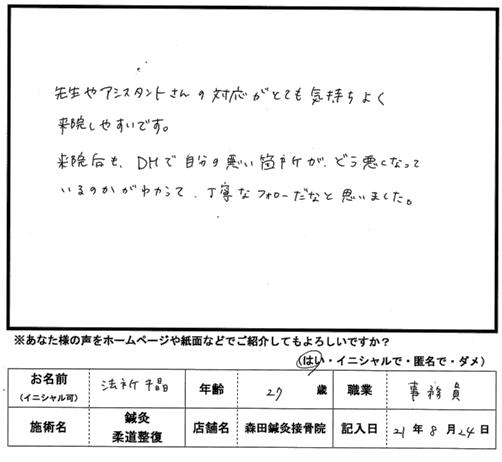 先生やアシスタントさんの対応がとても気持ちよく
来院しやすいです。
来院后も、DMで自分の悪い箇所が、どう悪くなって
いるのかがわかって、丁寧なフォローだなと思いました。
※あなた様の声をホームページや紙面などでご紹介してもよろしいですか？
（はい・イニシャルで・匿名で・ダメ）
お名前 法所 千晶 年齢 27 歳 職業 事務員
（イニシャル可）
施術名 鍼灸 柔道整復 店舗名 森田鍼灸接骨院 記入日 21 年 8 月 24 日